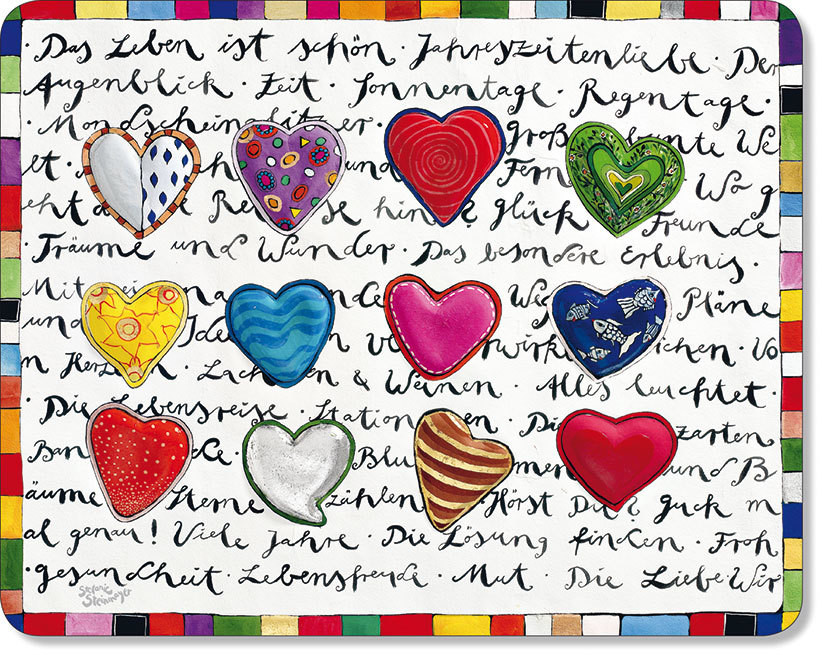 · Das Leben ist schön · Jahreszeitenliebe · Der
Augenblick · Zeit · Sonnentage · Regentage ·
· Mondschein er · Groß unte We
lt · h und Fern Wo g
eht d e Re se hin? Glück Freunde
· Träume und Wunder · Das besondere Erlebnis ·
Mit ein na nde Weg Pläne
und Ide n v wirk ichen · Vo
n Herzen · Lachen & Weinen · Alles leuchtet ·
· Die Lebensreise · Station en · Di zarten
Ban de · Blu men und B
äume Sterne zählen · Hörst Du? Guck m
al genau! Viele Jahre · Die Lösung finden · Froh
· gesundheit · Lebensfreude · Mut · Die Liebe · Wir
Stefanie
Steinmayer